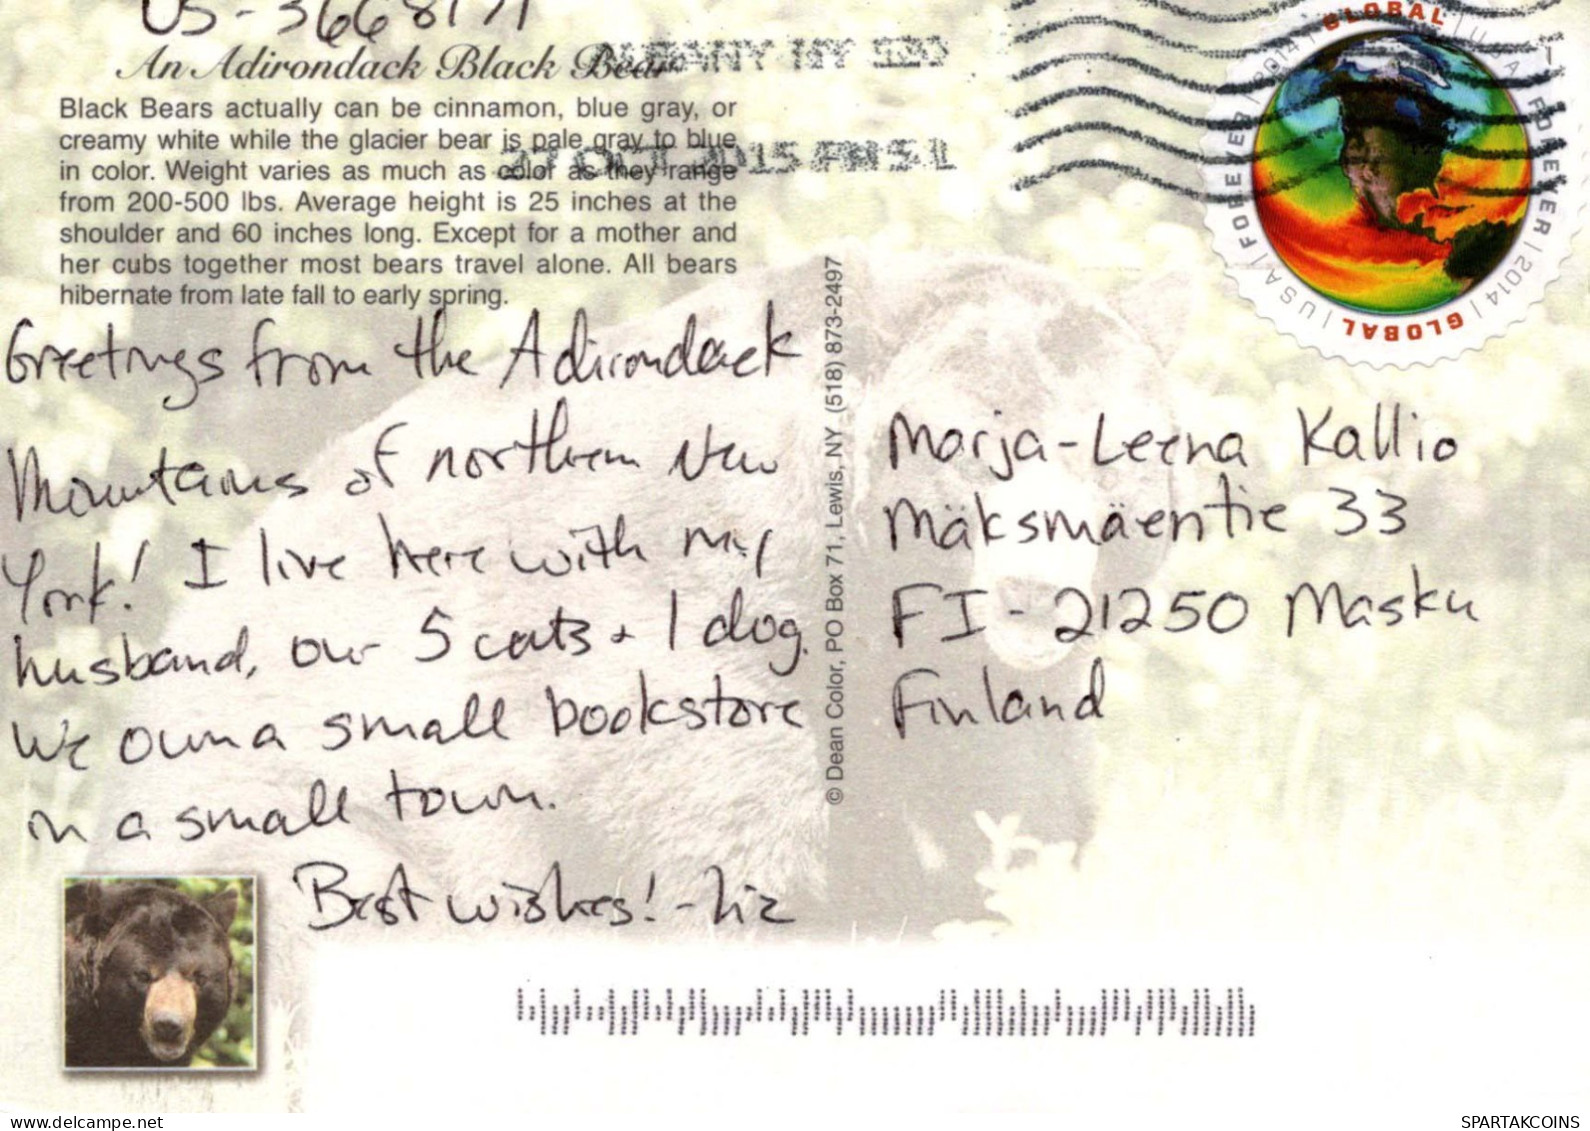 US-3668171
An Adirondack Black Bear
ALBANY NY
Black Bears actually can be cinnamon, blue gray, or
creamy white while the glacier bear is pale gray to blue
in color. Weight varies as much as color as they range
from 200-500 lbs. Average height is 25 inches at the
shoulder and 60 inches long. Except for a mother and
her cubs together most bears travel alone. All bears
hibernate from late fall to early spring.
OCT 2015 PM 5 L
GLOBAL | USA | FOREVER | 2014 | GLOBAL | USA | FOREVER | 2014 |
Greetings from the Adirondack
Mountains of northern New
York! I live here with my
husband, our 5 cats + 1 dog.
We own a small bookstore
in a small town.
Best wishes! - Liz
© Dean Color, PO Box 71, Lewis, NY (518) 873-2497
Marja-Leena Kallio
Mäksmäentie 33
FI-21250 Masku
Finland
www.delcampe.net
SPARTAKCOINS